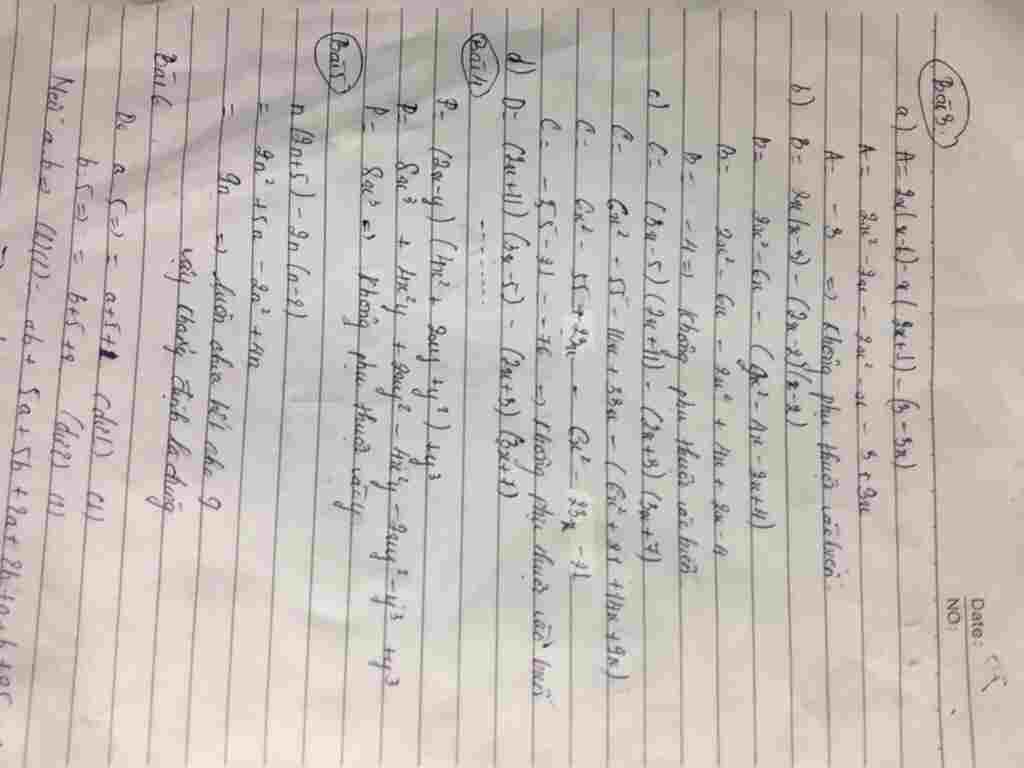 Date:
NO:
Bài 3.
a) A = 2x(x-1) - x(2x+1) - (3-3x)
A = 2x² - 2x - 2x² - x - 3 + 3x
A = - 3 => không phụ thuộc vào biến
b) B = 2x(x-3) - (2x-2)(x-2)
B = 2x² - 6x - (2x² - 4x - 2x + 4)
B = 2x² - 6x - 2x² + 4x + 2x - 4
B = - 4 => không phụ thuộc vào biến
c) C = (3x-5)(2x+11) - (2x+3)(3x+7)
C = 6x² - 55 - 10x + 33x - (6x² + 21 + 14x + 9x)
C = 6x² - 55 + 23x - 6x² - 23x - 21
C = - 55 - 21 = - 76 => không phụ thuộc vào biến
d) D = (2x+11)(3x-5) - (2x+3)(3x+7)
..........
Bài 4
P = (2x-y)(4x² + 2xy + y²) + y³
P = 8x³ + 4x²y + 2xy² - 4x²y - 2xy² - y³ + y³
P = 8x³ => không phụ thuộc vào y
Bài 5
n(2n+5) - 2n(n-2)
= 2n² + 5n - 2n² + 4n
= 9n => luôn chia hết cho 9
vậy khẳng định là đúng
Bài 6
Do a : 5 => = a + 5 + 1 (dư 1) (1)
b : 5 => = b + 5 + 2 (dư 2) (2)
Nên: a.b = (1)(2) = ab + 5a + 5b + 2a +